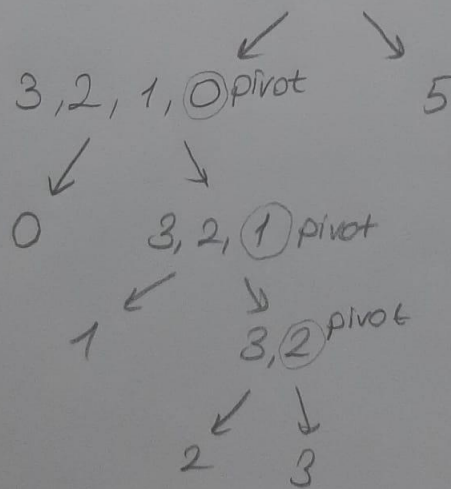 3, 2, 1, 0 pivot 5
0 3, 2, 1 pivot
1 3, 2 pivot
2 3